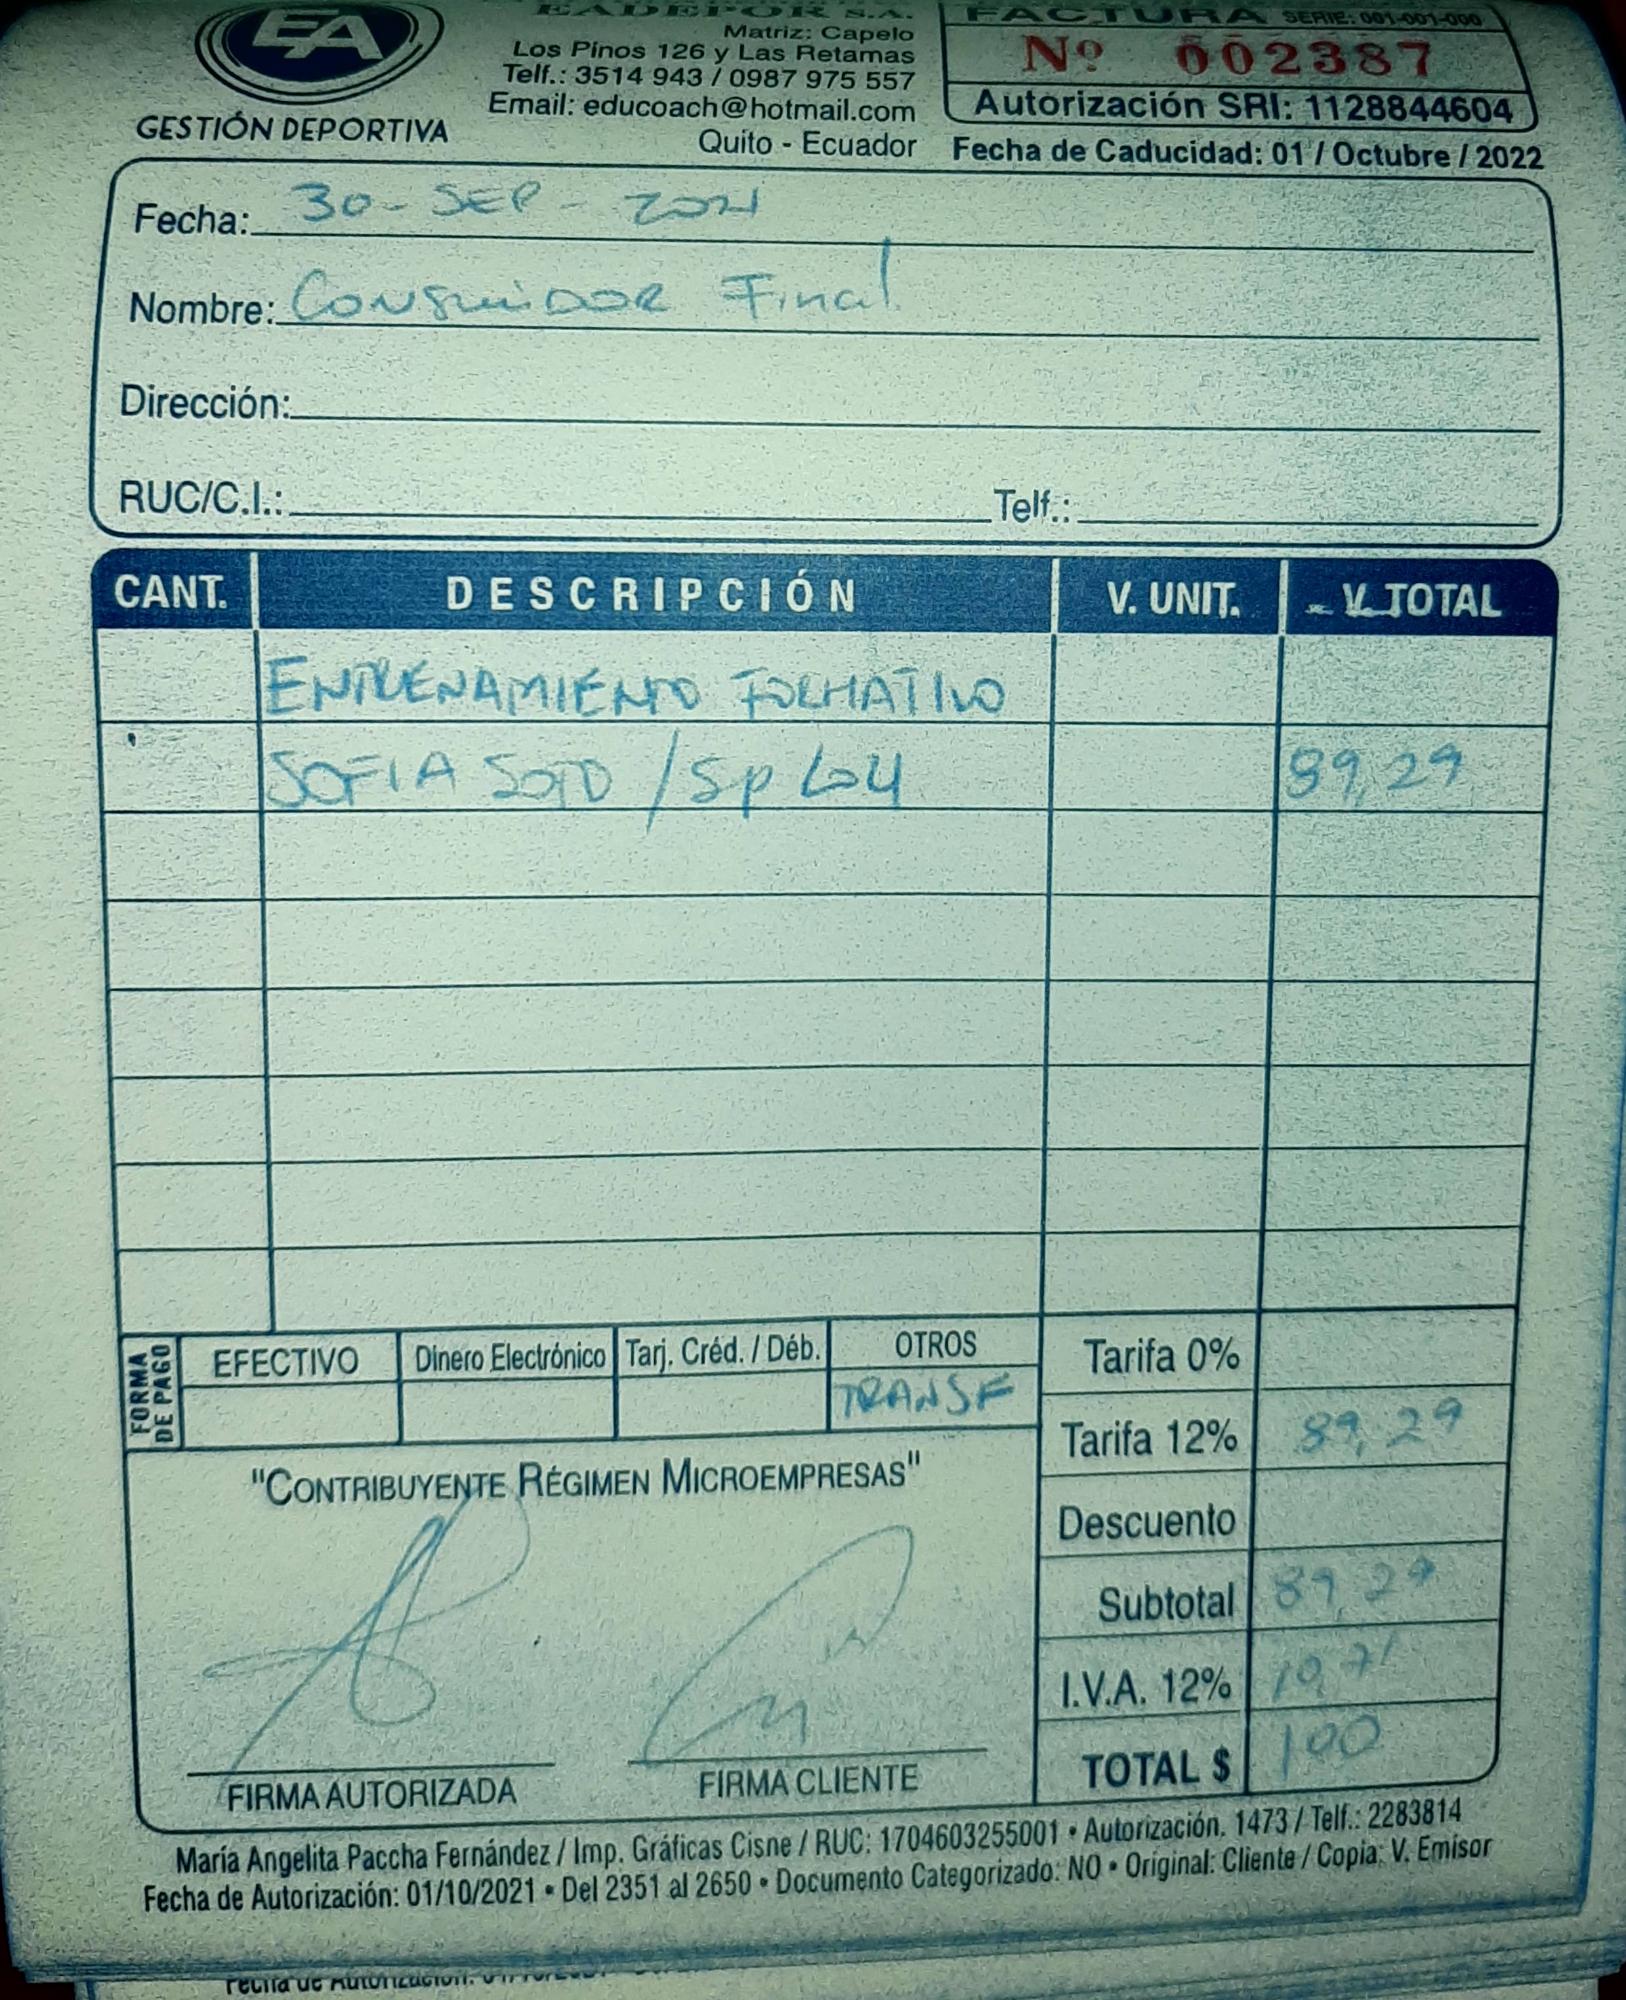 EA
GESTIÓN DEPORTIVA
EADEPOR S.A.
Matriz: Capelo
Los Pinos 126 y Las Retamas
Telf.: 3514 943 / 0987 975 557
Email: educoach@hotmail.com
Quito - Ecuador
FACTURA SERIE: 001-001-000
Nº 002387
Autorización SRI: 1128844604
Fecha de Caducidad: 01 / Octubre / 2022
Fecha: 30 - SEP - 2021
Nombre: Consumidor Final
Dirección:
RUC/C.I.: Telf.:
CANT. DESCRIPCIÓN V. UNIT. V. TOTAL
ENTRENAMIENTO FORMATIVO
SOFIA SOTO / Sp 89,29
FORMA DE PAGO
EFECTIVO Dinero Electrónico Tarj. Créd. / Déb. OTROS
TRANSF
Tarifa 0%
Tarifa 12% 89,29
Descuento
Subtotal 89,29
I.V.A. 12% 10,71
TOTAL $ 100
"CONTRIBUYENTE RÉGIMEN MICROEMPRESAS"
FIRMA AUTORIZADA FIRMA CLIENTE
María Angelita Paccha Fernández / Imp. Gráficas Cisne / RUC: 1704603255001 • Autorización. 1473 / Telf.: 2283814
Fecha de Autorización: 01/10/2021 • Del 2351 al 2650 • Documento Categorizado: NO • Original: Cliente / Copia: V. Emisor
Fecha de Autorización: